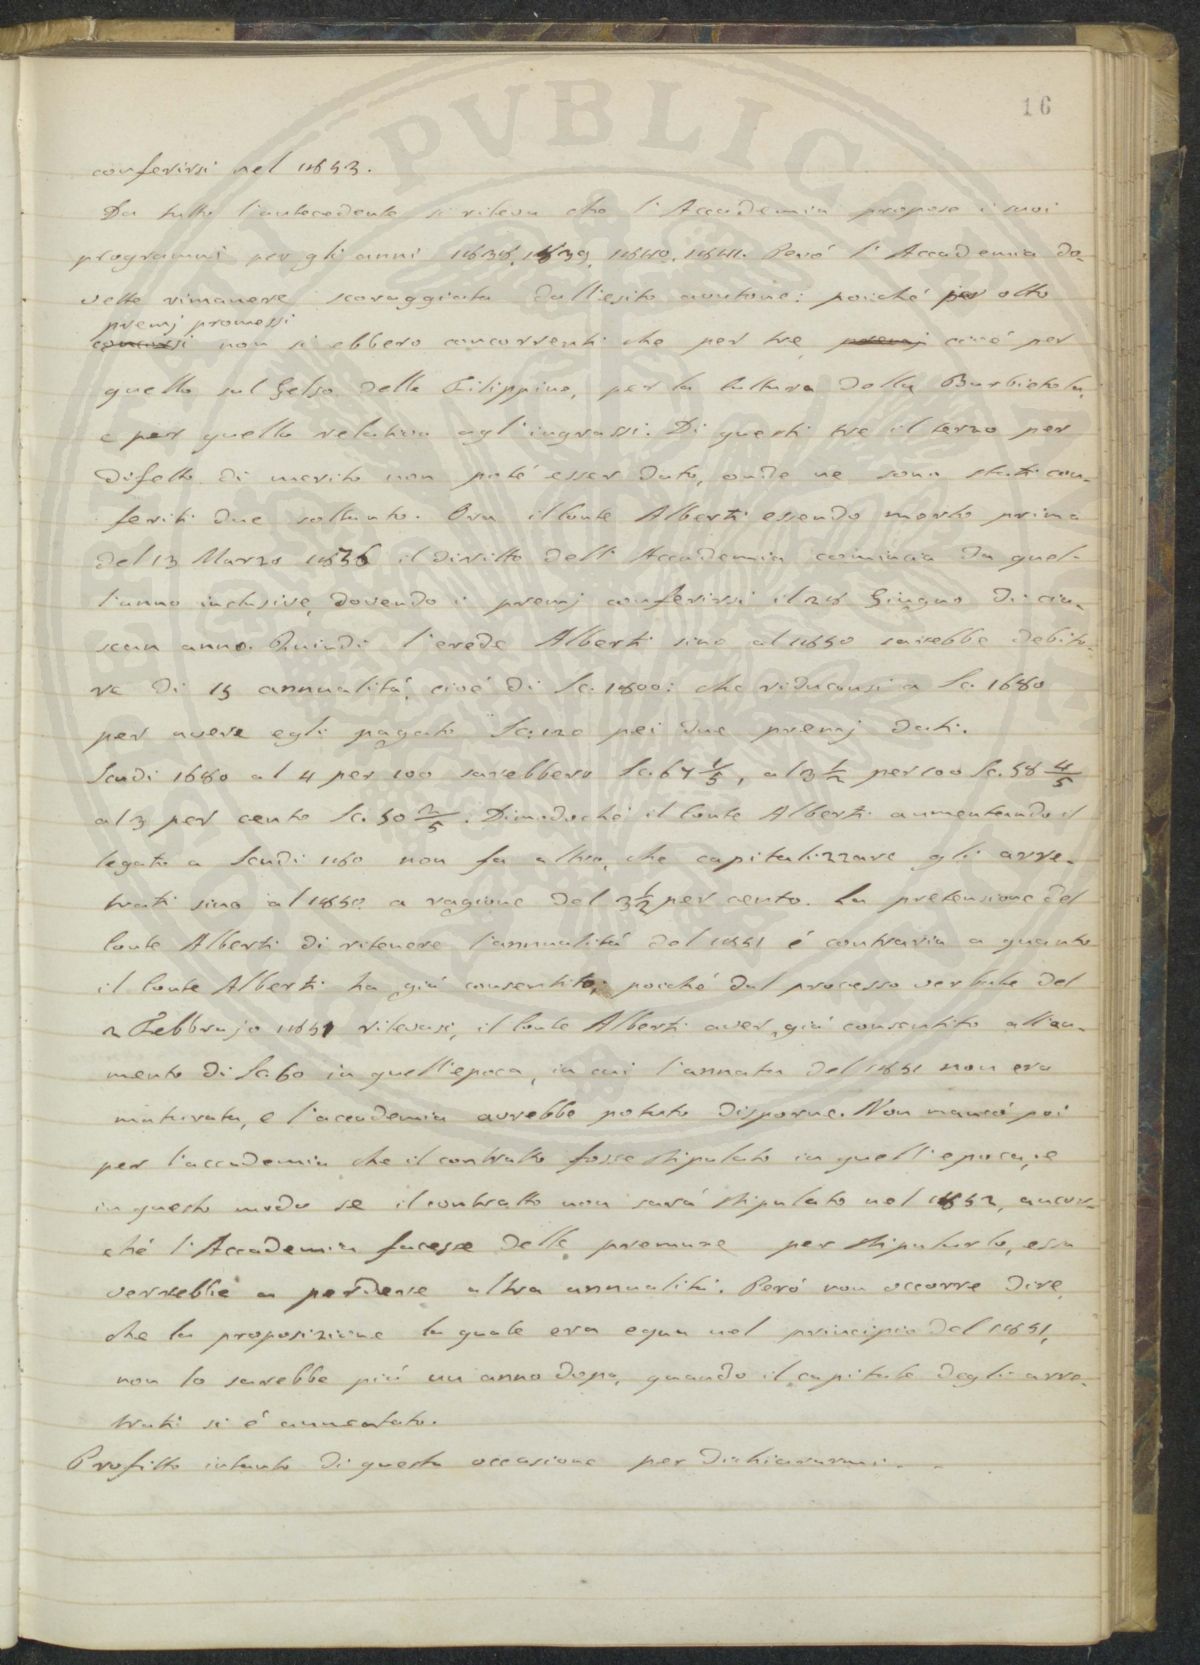 16
conferirsi nel 1853.
Da tutto l'antecedente si rileva che l'Accademia propose i suoi
programmi per gli anni 1838, 1839, 1840, 1841. Però l'Accademia do-
vette rimanere scoraggiata dall'esito avutone: poiché per otto
premj promessi
concorsi non si ebbero concorrenti che per tre premj cioè per
quello sul Gelso delle Filippine, per la cultura della Barbietola,
e per quello relativo agl'ingrassi. Di questi tre il terzo per
difetto di merito non poté esser dato, onde ne sono stati con-
feriti due soltanto. Ora il Conte Alberti essendo morto prima
del 13 Marzo 1836 il diritto dell'Accademia comincia da quel-
l'anno inclusive, dovendo i premj conferirsi il 28 Giugno di cia-
scun anno. Quindi l'erede Alberti sino al 1850 sarebbe debito-
re di 15 annualità, cioè di Sc. 1800: che riduconsi a Sc. 1680
per avere egli pagato Sc. 120 pei due premj dati.
Scudi 1680 al 4 per 100 sarebbero Sc. 67 1/5, al 3 1/2 per 100 Sc. 58 4/5
al 3 per cento Sc. 50 2/5. Dimodoché il Conte Alberti aumentando il
legato a Scudi 180 non fa altro, che capitalizzare gli arre-
trati sino al 1850 a ragione del 3 1/2 per cento. La pretensione del
Conte Alberti di ritenere l'annualità del 1851 é contraria a quanto
il Conte Alberti ha già consentito; poiché dal processo verbale del
2 Febbrajo 1851 rilevasi, il Conte Alberti aver già consentito all'au-
mento di Sc. 60 in quell'epoca, in cui l'annata del 1851 non era
maturata, e l'accademia avrebbe potuto disporne. Non mancò poi
per l'accademia che il contratto fosse stipulato in quell'epoca, e
in questo modo se il contratto non sarà stipulato nel 1852, ancor-
ché l'Accademia facesse delle premure per stipularlo, essa
verrebbe a perdere altra annualità. Però non occorre dire,
che la proposizione la quale era equa nel principio del 1851,
non lo sarebbe più un anno dopo, quando il capitale degli arre-
trati si é aumentato.
Profitto intanto di questa occasione per dichiararmi...
PVBLICA